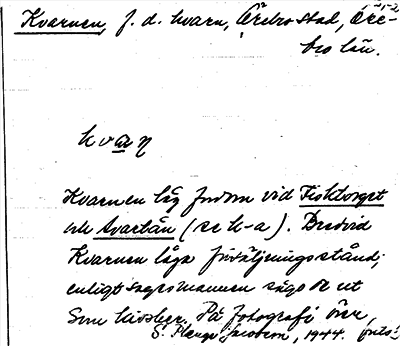 Kvarnen, f. d. kvarn, Örebro stad, Öre-
bro län.
kvaŋ
Kvarnen låg förr vid Fisktorget
och Svartån (se k-a). Bredvid
Kvarnen låga försäljningsstånd;
enligt sagesmannen sågo de ut
som kiosker. På fotografi över
S. Plenge Jacobson, 1944.